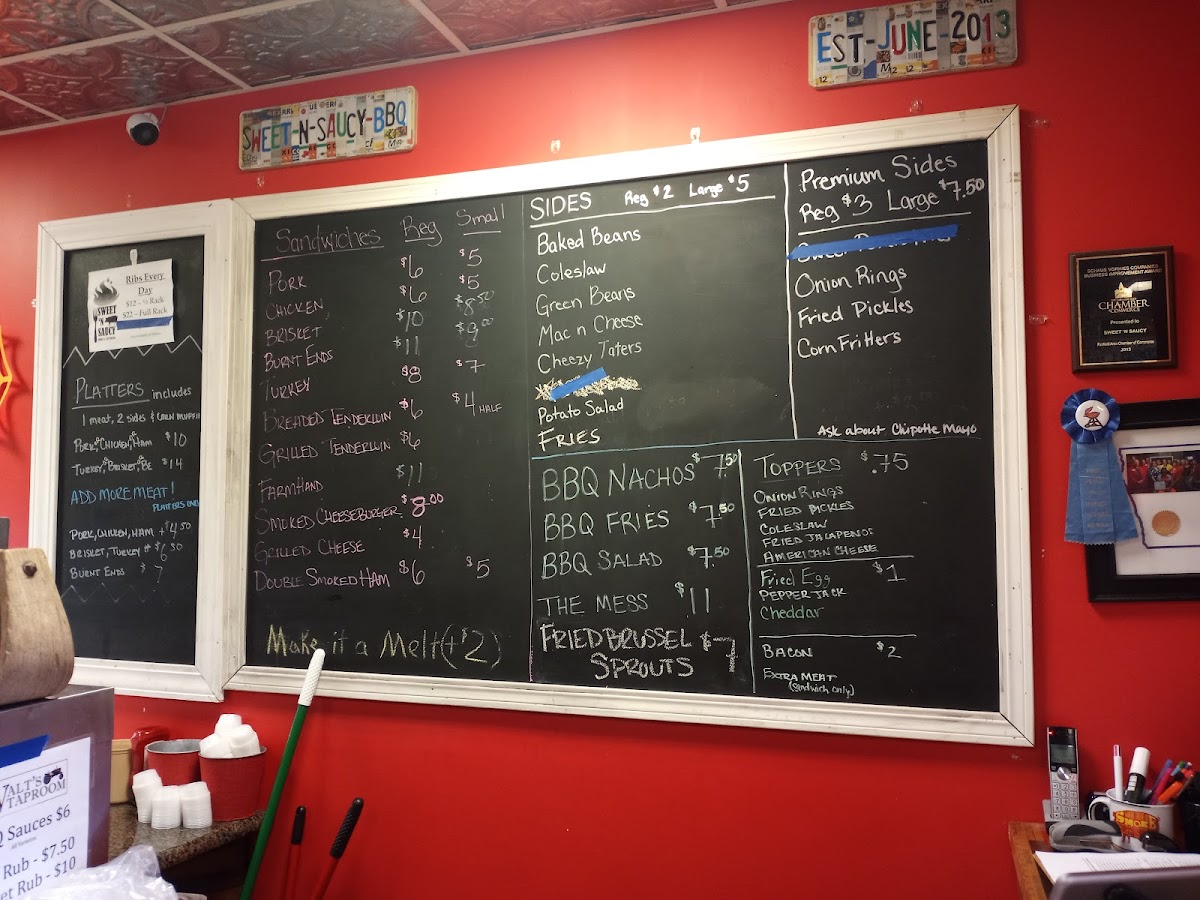 SWEET-N-SAUCY-BBQ
EST-JUNE-2013
Ribs Every
Day
$12 - ½ Rack
$22 - Full Rack
SWEET
'N
SAUCY
PLATTERS includes
1 meat, 2 sides & CORN MUFFIN
PORK, CHICKEN, HAM $10
TURKEY, BRISKET, BE $14
ADD MORE MEAT!
PLATTERS ONLY
PORK, CHICKEN, HAM +$4.50
BRISKET, TURKEY $6.50
BURNT ENDS $7
Sandwiches Reg Small
PORK $6 $5
CHICKEN $6 $5
BRISKET $10 $8.50
BURNT ENDS $11 $9.00
TURKEY $8 $7
BREADED TENDERLOIN $6 $4 HALF
GRILLED TENDERLOIN $6
FARMHAND $11
SMOKED CHEESEBURGER $8.00
GRILLED CHEESE $4
DOUBLE SMOKED HAM $6 $5
Make it a Melt (+$2)
SIDES Reg $2 Large $5
Baked Beans
Coleslaw
Green Beans
Mac n Cheese
Cheezy Taters
Potato Salad
FRIES
Premium Sides
Reg $3 Large $7.50
Onion Rings
Fried Pickles
Corn Fritters
Ask about Chipotle Mayo
BBQ NACHOS $7.50
BBQ FRIES $7.50
BBQ SALAD $7.50
THE MESS $11
FRIED BRUSSEL $7
SPROUTS
TOPPERS $.75
ONION RINGS
FRIED PICKLES
COLESLAW
FRIED JALAPENOS
AMERICAN CHEESE
Fried Egg $1
PEPPER JACK
Cheddar
BACON $2
EXTRA MEAT
(Sandwich only)
BUSINESS IMPROVEMENT AWARD
CHAMBER
Presented to
SWEET 'N SAUCY
2013
WALT'S
TAPROOM
Q Sauces $6
Rub - $7.50
et Rub - $10
SMOKE